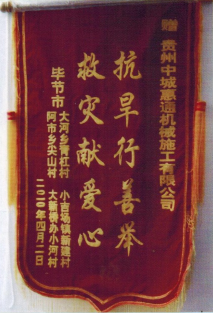 赠 贵州中城基础机械施工有限公司
抗旱行善举
救灾献爱心
毕节市
大河乡青杠村 小吉场镇新建村
阿市乡尖山村 大新桥办小河村
二〇二〇年四月二日